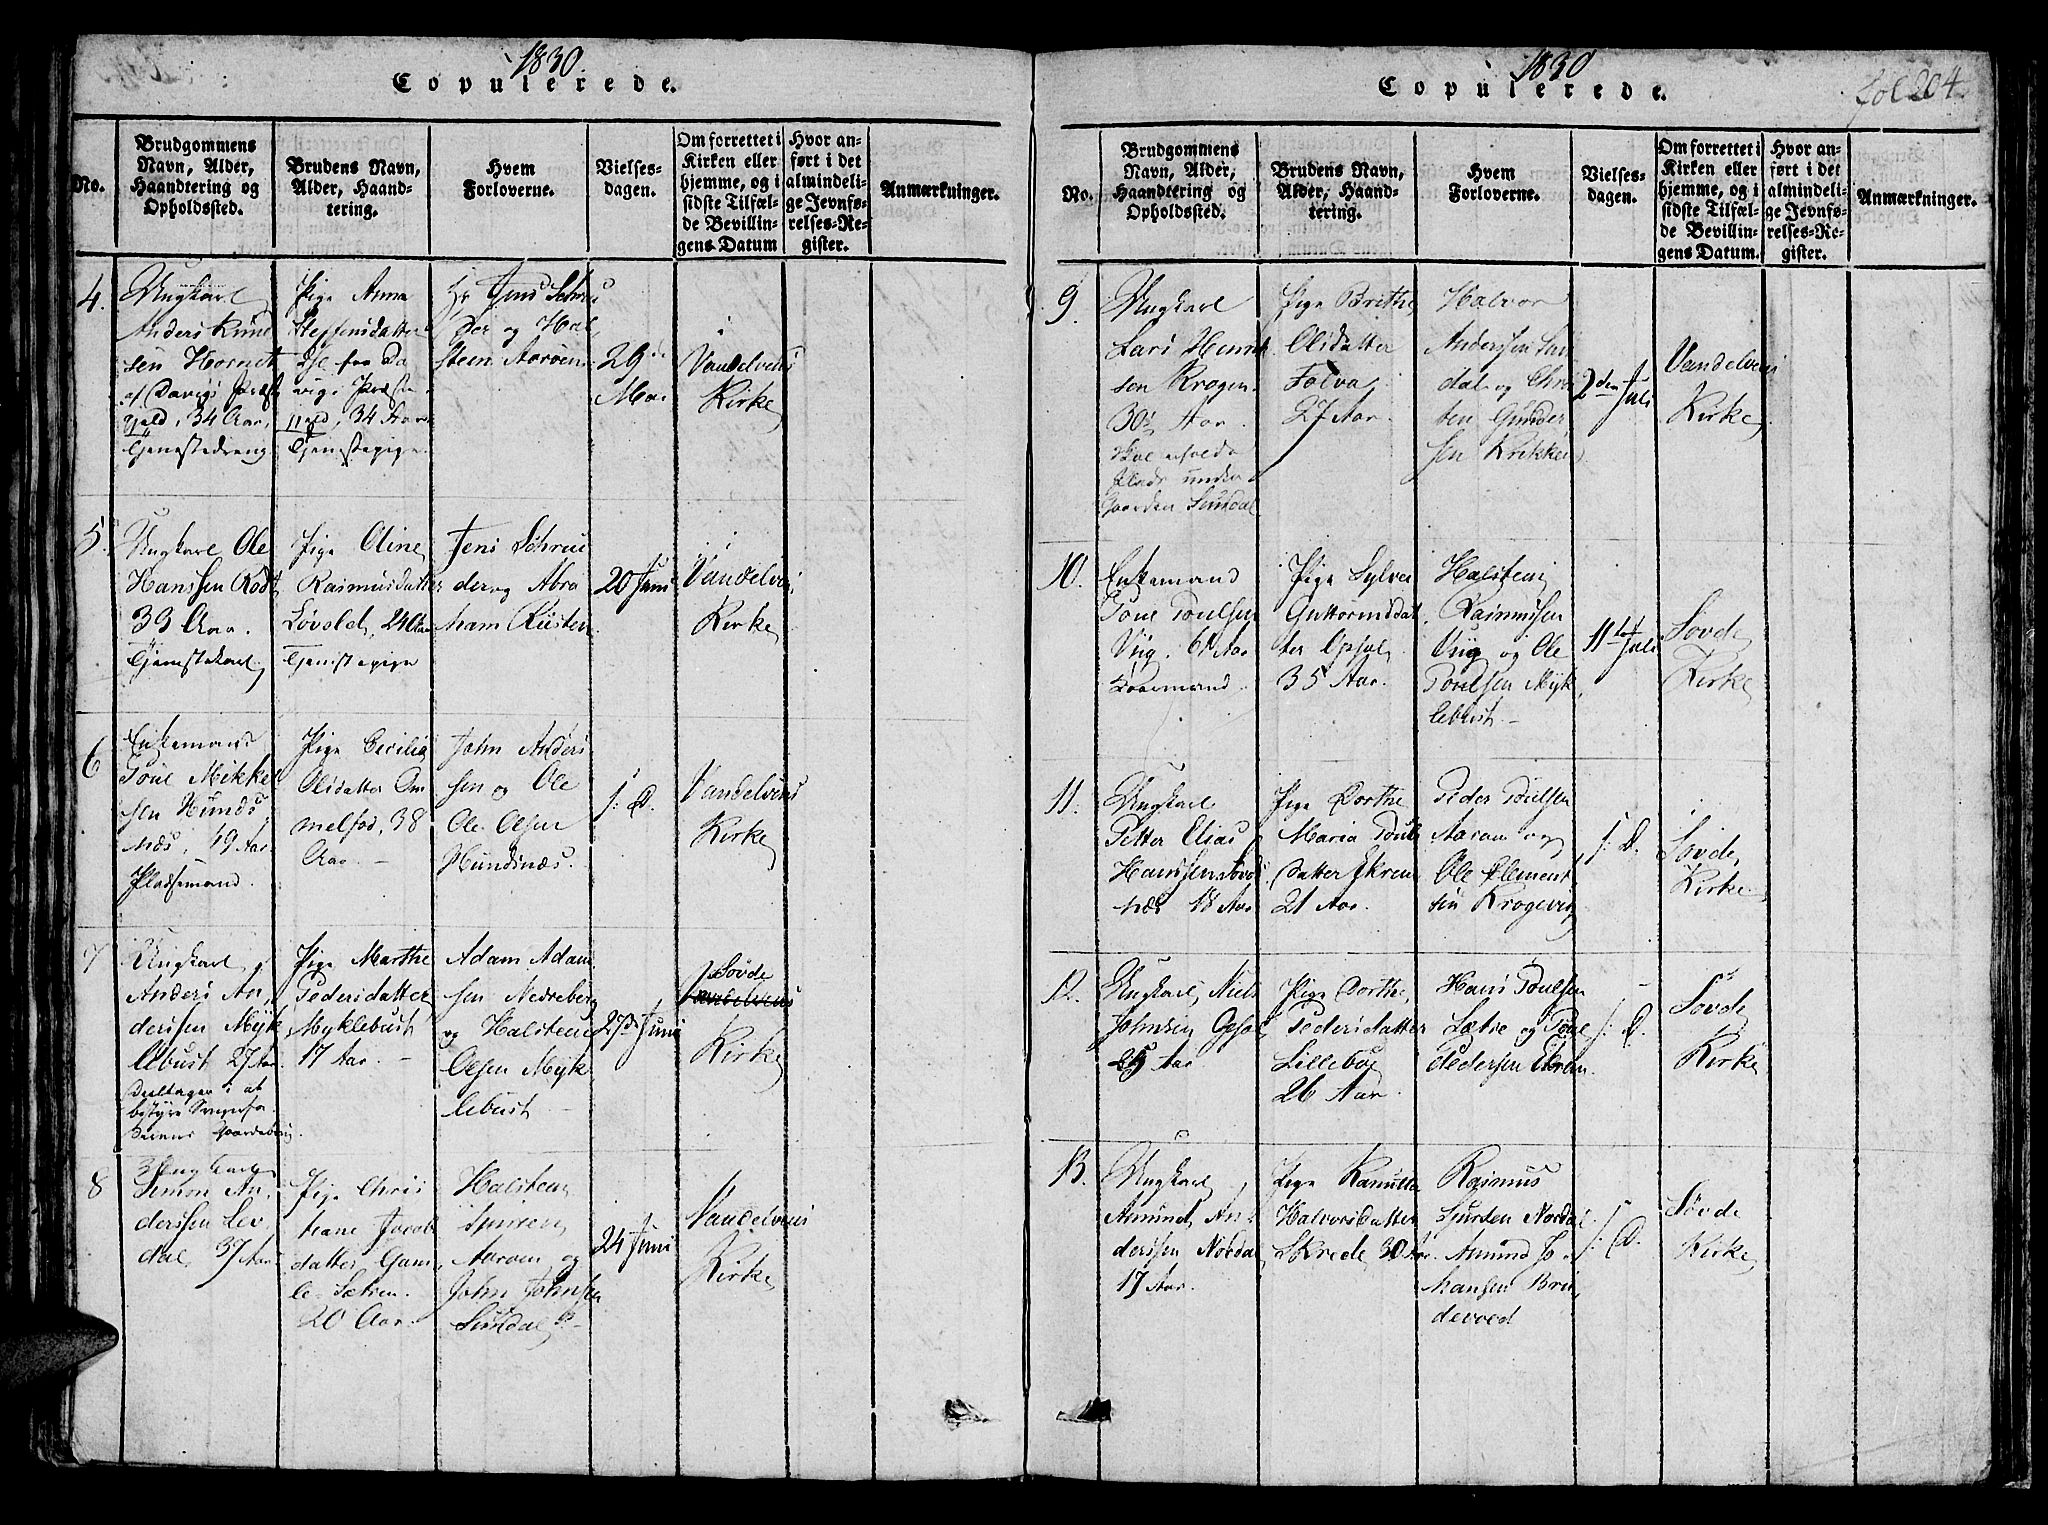 1830.
Copulerede.
No.
Brudgommens
Navn, Alder,
Haandtering og
Opholdssted.
Brudens Navn,
Alder, Haand-
tering.
Hvem
Forloverne.
Vielses-
dagen.
Om forrettet i
Kirken eller
hjemme, og i
sidste Tilfæl-
de Bevillin-
gens Datum
Hvor an-
ført i det
almindeli-
ge Jevnfø-
relses-Re-
gister.
Anmærkninger.
4.
Ungkarl
Anders
sen
af Præste
gjeld, 34 Aar,
Tjenestedreng
Pige Anna
Steffensdatter
fra Da
vigs Præste
gjeld, 34 Aar
Tjenestepige
Hr. Jens
der og Hal
steen Aarøen
29de
Mai
i
Vandelvens
Kirke
5.
Ungkarl Ole
Hanssen
33 Aar.
Tjenestekarl
Pige Oline
Rasmusdatter
Løvold, 24 Aar
Tjenestepige
Jens
der og Abra
ham
20 Juni
i
Vandelvens
Kirke
6
Enkemand
Poul Mikkel
sen Hunds
næs, 49 Aar
Pladsemand.
Pige Cecilia
Olsdatter Om
melfod, 38
Aar. –
John Anders
sen og Ole
Ole Olsen
Hundsnæs.
s: D.
i
Vandelvens
Kirke
7
Ungkarl
Anders An
derssen Myk
lebust 27 Aar
Deeltager i at
bestyre
Pige Marthe
Pedersdatter
Myklebust
17 Aar. –
Adam Adam
sen Nedreberg
og Halsteen
Olsen Myk
lebust –
27de Juni
i Søvde
Vandelvens
Kirke
8
Ungkarl
Simon An
derssen Lev
dal, 37 Aar
Pige Chris
tiane Jacobs
datter Gam
le-Sætren.
20 Aar.
Halsteen
Aarøen og
John Johnsen
Sundal –
24 Juni
i
Vandelvens
Kirke
1830
Copulerede.
fol 204
No.
Brudgommens
Navn, Alder,
Haandtering og
Opholdssted.
Brudens Navn,
Alder, Haand-
tering.
Hvem
Forloverne.
Vielses-
dagen.
Om forrettet i
Kirken eller
hjemme, og i
sidste Tilfæl-
de Bevillin-
gens Datum.
Hvor an-
ført i det
almindeli-
ge Jevnfø-
relses-Re-
gister.
Anmærkninger.
9.
Ungkarl
Lars
sen Krogen
30½ Aar.
Plads under
Gaarden Sundal
Pige Brithe
Olsdatter
Folva
27 Aar.
Halvor
Anderssen Sun
dal og Chris
ten Gunder
sen
2den Juli
i
Vandelvens
Kirke
10.
Enkemand
Poul Poulsen
Viig, 61 Aar
Pige Sylvei
Guttormsdat
ter Opsal
35 Aar.
Halsteen
Rasmussen
Viig og Ole
Poulsen Myk
lebust –
11te Juli
i
Søvde
Kirke
11.
Ungkarl
Petter Elias
Hanssen Søvds
næs 18 Aar
Pige Dorthe
Maria Pouls
datter Ekrem
21 Aar.
Peder Poulsen
Aaram og
Ole Clement
sen Krogevig
s: D.
i
Søvde
Kirke
12.
Ungkarl Niels
Johnsen Opsal
25 Aar
Pige Dorthe
Pedersdatter
Lillebøe
26 Aar
Hans Poulsen
Sætre og Poul
Pedersen Ekrem.
s: D.
i
Søvde
Kirke
13.
Ungkarl
Amund An
derssen Nordal
17 Aar.
Pige Ranulta
Halvorsdatter
Skrede 30 Aar.
Rasmus
Sjursen Nordal
Amund Jo
hansen Bru
devoed
s: D.
i
Søvde
Kirke